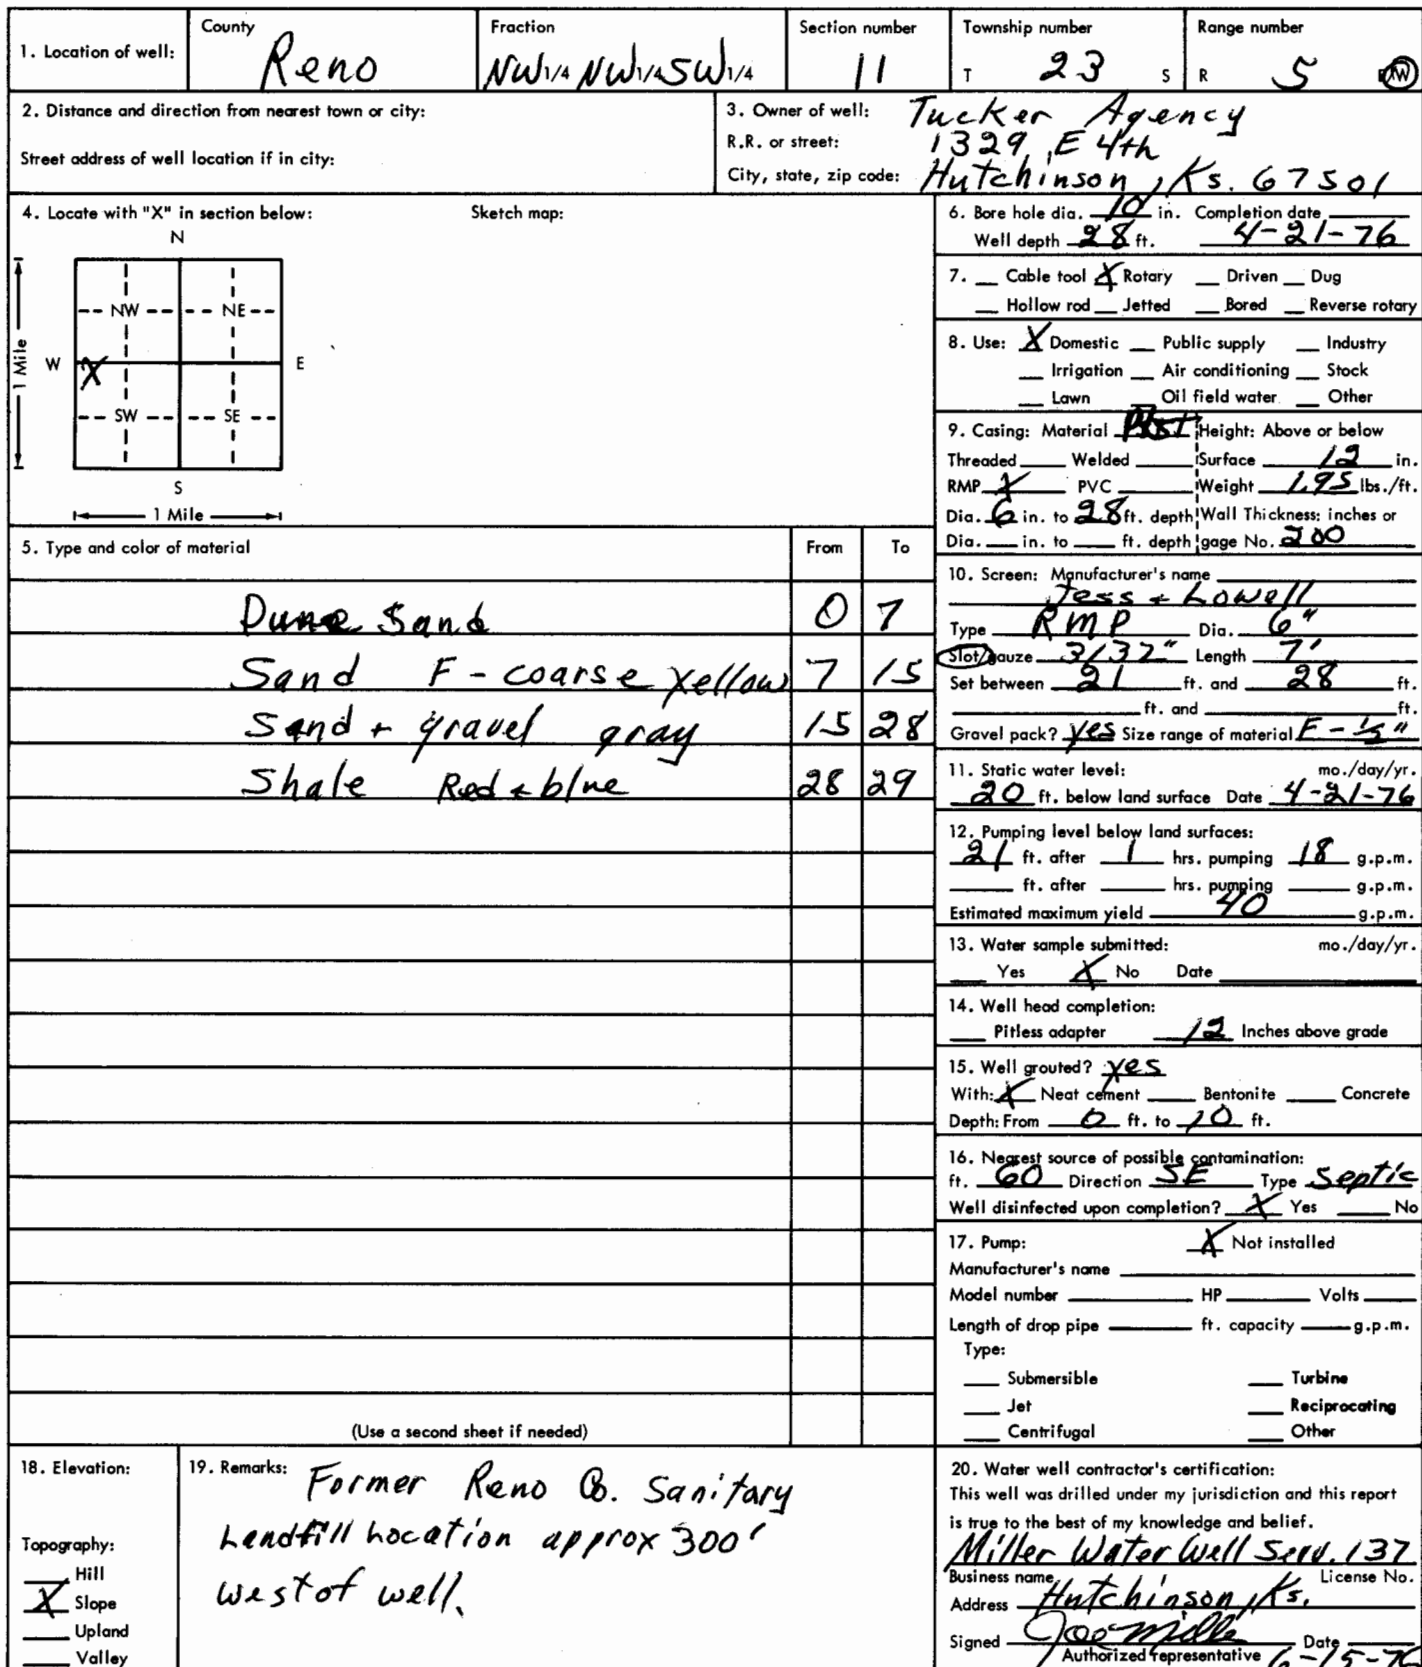 1. Location of well: County Reno Fraction NW 1/4 NW 1/4 SW 1/4 Section number 11 Township number T 23 S Range number R 5 W
2. Distance and direction from nearest town or city:
Street address of well location if in city:
3. Owner of well: Tucker Agency
R.R. or street: 1329 E 4th
City, state, zip code: Hutchinson, Ks. 67501
4. Locate with "X" in section below: Sketch map:
N
NW NE
W X E
1 Mile
SW SE
S
1 Mile
5. Type and color of material From To
Dune Sand 0 7
Sand F - coarse yellow 7 15
Sand + gravel gray 15 28
Shale Red + blue 28 29
(Use a second sheet if needed)
6. Bore hole dia. 10 in. Completion date
Well depth 28 ft. 4-21-76
7. __ Cable tool X Rotary __ Driven __ Dug
__ Hollow rod __ Jetted __ Bored __ Reverse rotary
8. Use: X Domestic __ Public supply __ Industry
__ Irrigation __ Air conditioning __ Stock
__ Lawn __ Oil field water __ Other
9. Casing: Material Height: Above or below
Threaded ___ Welded ___ Surface 12 in.
RMP X PVC ___ Weight 1.95 lbs./ft.
Dia. 6 in. to 28 ft. depth Wall Thickness: inches or
Dia. __ in. to __ ft. depth gage No. 200
10. Screen: Manufacturer's name
Jess + Lowell
Type RMP Dia. 6"
Slot/gauze 3/32" Length 7'
Set between 21 ft. and 28 ft.
___ ft. and ___ ft.
Gravel pack? yes Size range of material F - 1/2"
11. Static water level: mo./day/yr.
20 ft. below land surface Date 4-21-76
12. Pumping level below land surfaces:
21 ft. after 1 hrs. pumping 18 g.p.m.
___ ft. after ___ hrs. pumping ___ g.p.m.
Estimated maximum yield 40 g.p.m.
13. Water sample submitted: mo./day/yr.
__ Yes X No Date
14. Well head completion:
__ Pitless adapter 12 Inches above grade
15. Well grouted? yes
With: X Neat cement ___ Bentonite ___ Concrete
Depth: From 0 ft. to 10 ft.
16. Nearest source of possible contamination:
ft. 60 Direction SE Type Septic
Well disinfected upon completion? X Yes ___ No
17. Pump: X Not installed
Manufacturer's name
Model number ___ HP ___ Volts ___
Length of drop pipe ___ ft. capacity ___ g.p.m.
Type:
__ Submersible __ Turbine
__ Jet __ Reciprocating
__ Centrifugal __ Other
18. Elevation:
Topography:
__ Hill
X Slope
__ Upland
__ Valley
19. Remarks: Former Reno Co. Sanitary
Landfill Location approx 300'
west of well.
20. Water well contractor's certification:
This well was drilled under my jurisdiction and this report
is true to the best of my knowledge and belief.
Miller Water Well Serv. 137
Business name License No.
Address Hutchinson, Ks.
Signed Joe Miller Date
Authorized representative 6-15-76